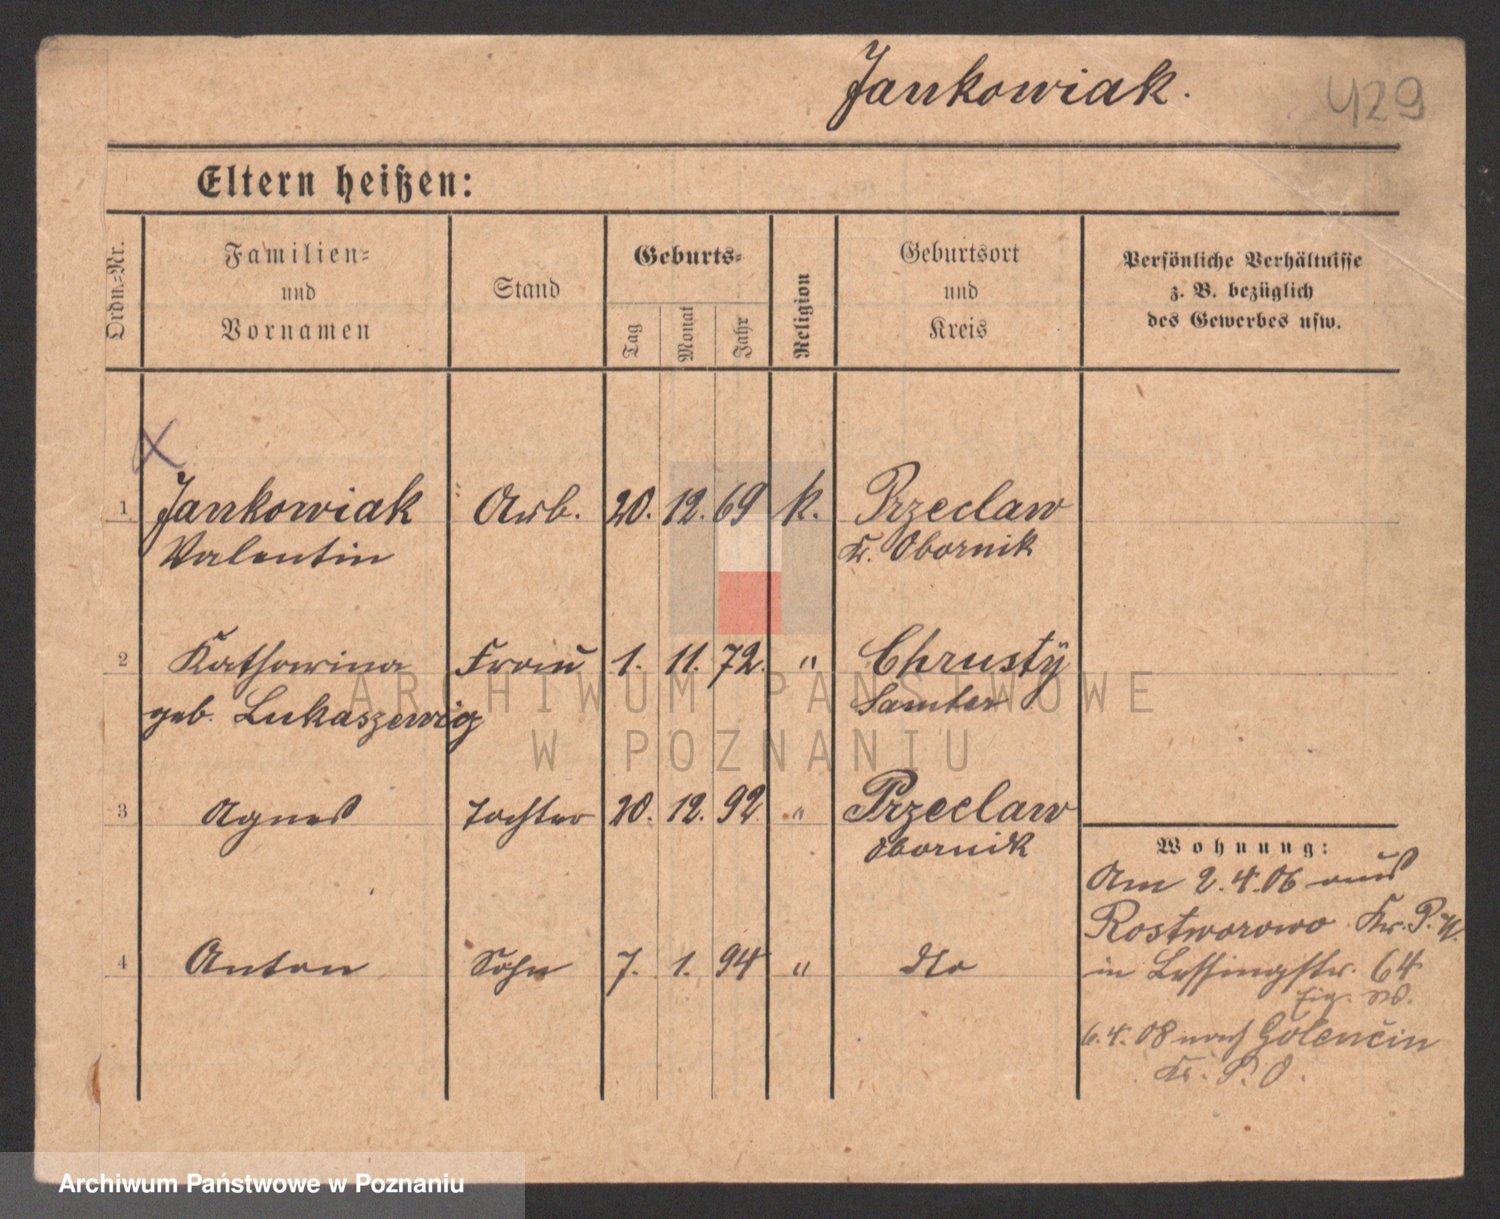 Jankowiak.
429
Eltern heißen:
Ordn.-Nr.
Familien-
und
Vornamen
Stand
Geburts-
Tag
Monat
Jahr
Religion
Geburtsort
und
Kreis
Persönliche Verhältnisse
z. B. bezüglich
des Gewerbes usw.
1 Jankowiak Arb. 20. 12. 69 k. Przeclaw
Valentin Kr. Obornik
2 Katharina Frau 1. 11. 72. " Chrusty
geb. Lukaszewig Samter
3 Agnes Tochter 20. 12. 92 " Przeclaw
Obornik
4 Anton Sohn 7. 1. 94 " dto
Wohnung:
Am 2.4.06 aus
Rostworowo Kr. P. W.
in Lessingstr. 64
Eig. W.
6.4.08 nach Golencin
Kr. P. O.
ARCHIWUM PAŃSTWOWE
W POZNANIU
Archiwum Państwowe w Poznaniu